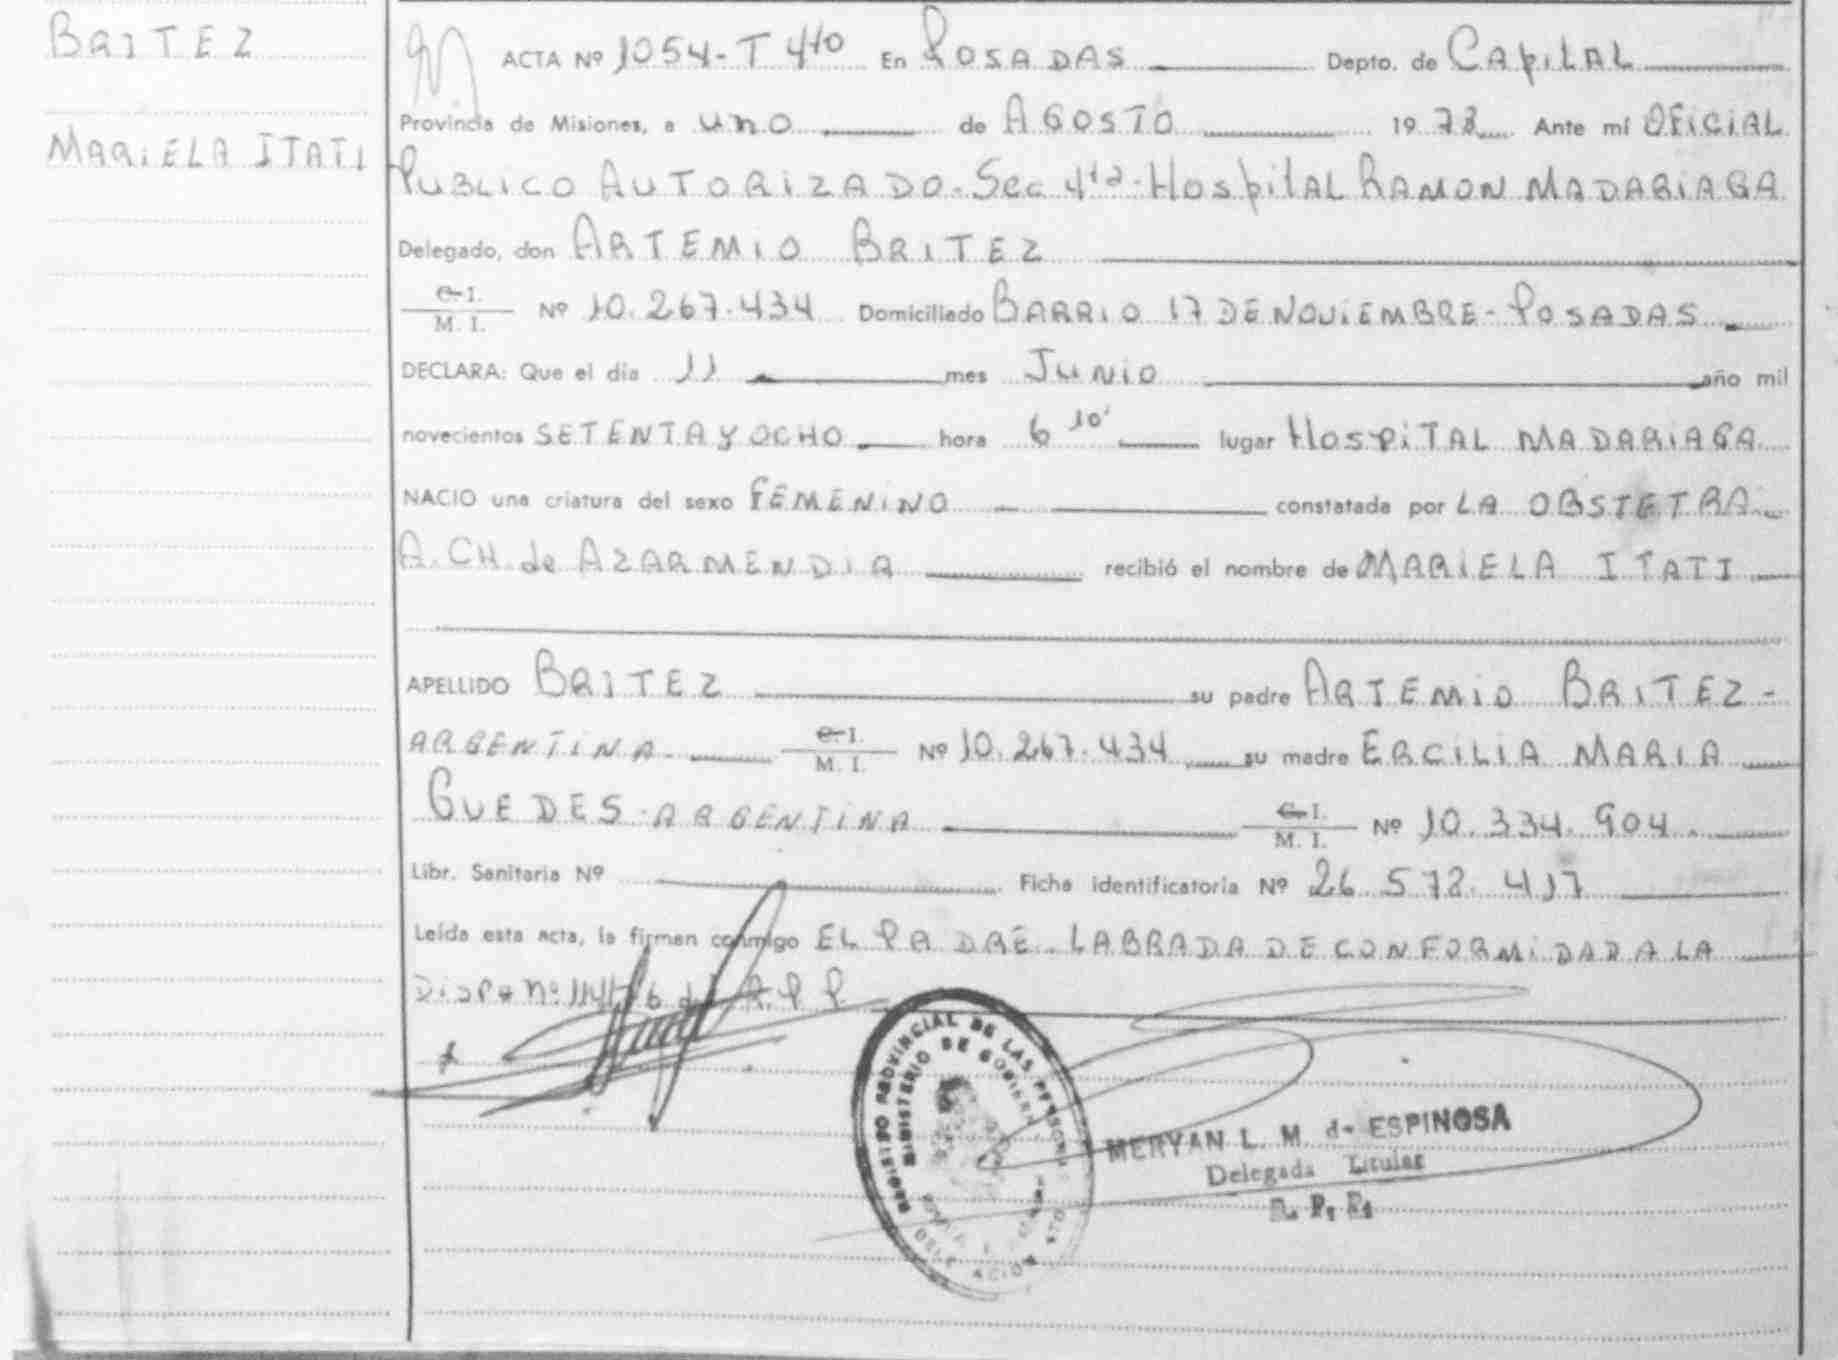 BRITEZ
MARIELA ITATI
ACTA Nº 1054-T 4to En POSADAS Depto. de CAPITAL
Provincia de Misiones, a uno de AGOSTO 19 78 Ante mí OFICIAL
PUBLICO AUTORIZADO-Sec 4ta-HospitAL RAMON MADARIAGA
Delegado, don ARTEMIO BRITEZ
C.I. / M. I. Nº 10.267.434 Domiciliado BARRIO 17 DE NOVIEMBRE-POSADAS
DECLARA: Que el día 11 mes JUNIO año mil
novecientos SETENTA Y OCHO hora 6 10' lugar HOSPITAL MADARIAGA
NACIO una criatura del sexo FEMENINO constatada por LA OBSTETRA
A. CH. de AZARMENDIA recibió el nombre de MARIELA ITATI
APELLIDO BRITEZ su padre ARTEMIO BRITEZ-
ARGENTINA C.I. / M. I. Nº 10.267.434 su madre ERCILIA MARIA
GUEDES-ARGENTINA C.I. / M. I. Nº 10.334.904.
Libr. Sanitaria Nº Ficha identificatoria Nº 26.572.417
Leída esta acta, la firman conmigo EL PADRE. LABRADA DE CONFORMIDAD A LA
REGISTRO PROVINCIAL DE LAS PERSONAS
MINISTERIO DE GOBIERNO
MERYAN L. M. de ESPINOSA
Delegada Titular